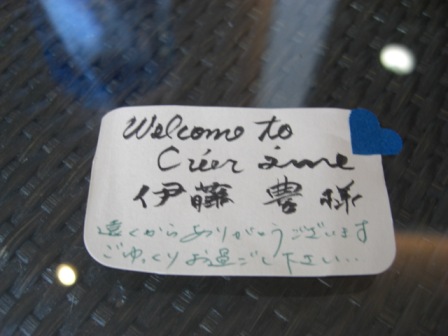 Welcome to
Créer âme
伊藤 豊 様
遠くからありがとうございます
ごゆっくりお過ごし下さい…